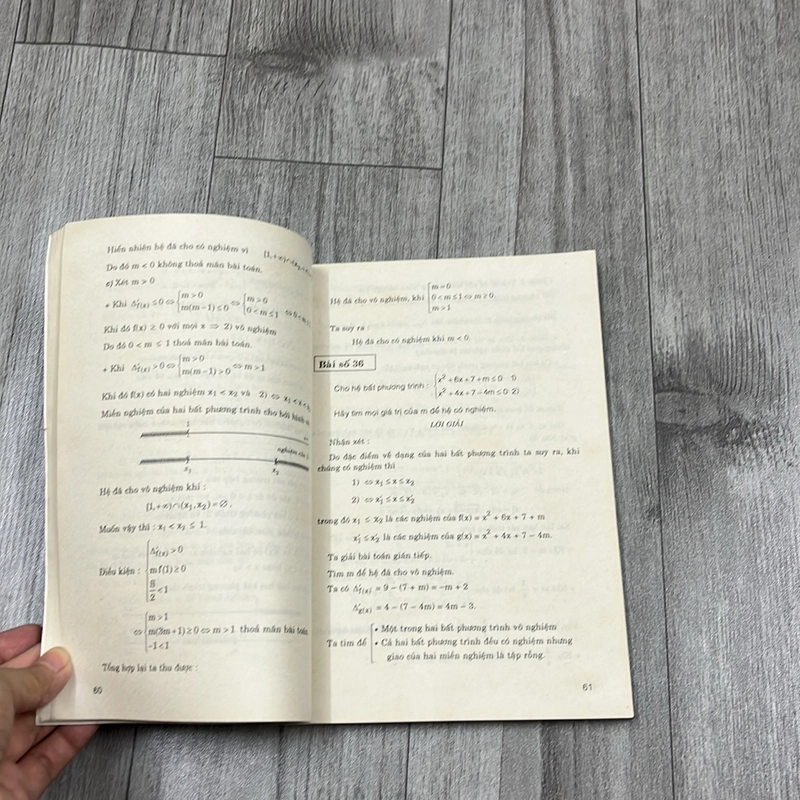 Hiển nhiên hệ đã cho có nghiệm vì [1,+∞)∩(x₂,+∞
Do đó m < 0 không thoả mãn bài toán.
c) Xét m > 0
+ Khi Δ'f(x) ≤ 0 ⇔ {m > 0 / m(m−1) ≤ 0 ⇔ {m > 0 / 0 < m ≤ 1 ⇔ 0 < m
Khi đó f(x) ≥ 0 với mọi x ⇒ 2) vô nghiệm
Do đó 0 < m ≤ 1 thoả mãn bài toán.
+ Khi Δ'f(x) > 0 ⇔ {m > 0 / m(m−1) > 0 ⇔ m > 1
Khi đó f(x) có hai nghiệm x₁ < x₂ và 2) ⇔ x₁ < x <
Miền nghiệm của hai bất phương trình cho bởi hình
1
nghiệm của
x₁ x₂
Hệ đã cho vô nghiệm khi :
[1,+∞)∩(x₁,x₂) = ∅.
Muốn vậy thì : x₁ < x₂ ≤ 1.
Điều kiện : {Δ'f(x) > 0 / mf(1) ≥ 0 / S/2 < 1
⇔ {m > 1 / m(3m+1) ≥ 0 / −1 < 1 ⇔ m > 1 thoả mãn bài toán.
Tổng hợp lại ta thu được :
60
Hệ đã cho vô nghiệm, khi {m = 0 / 0 < m ≤ 1 / m > 1 ⇔ m ≥ 0.
Ta suy ra :
Hệ đã cho có nghiệm khi m < 0.
Bài số 36
Cho hệ bất phương trình : {x² + 6x + 7 + m ≤ 0 1) / x² + 4x + 7 − 4m ≤ 0 2)
Hãy tìm mọi giá trị của m để hệ có nghiệm.
LỜI GIẢI
Nhận xét :
Do đặc điểm về dạng của hai bất phương trình ta suy ra, khi
chúng có nghiệm thì
1) ⇔ x₁ ≤ x ≤ x₂
2) ⇔ x₁' ≤ x ≤ x₂'
trong đó x₁ ≤ x₂ là các nghiệm của f(x) = x² + 6x + 7 + m
x₁' ≤ x₂' là các nghiệm của g(x) = x² + 4x + 7 − 4m.
Ta giải bài toán gián tiếp.
Tìm m để hệ đã cho vô nghiệm.
Ta có Δ'f(x) = 9 − (7 + m) = −m + 2
Δ'g(x) = 4 − (7 − 4m) = 4m − 3.
Ta tìm để [• Một trong hai bất phương trình vô nghiệm
• Cả hai bất phương trình đều có nghiệm nhưng
giao của hai miền nghiệm là tập rỗng.
61